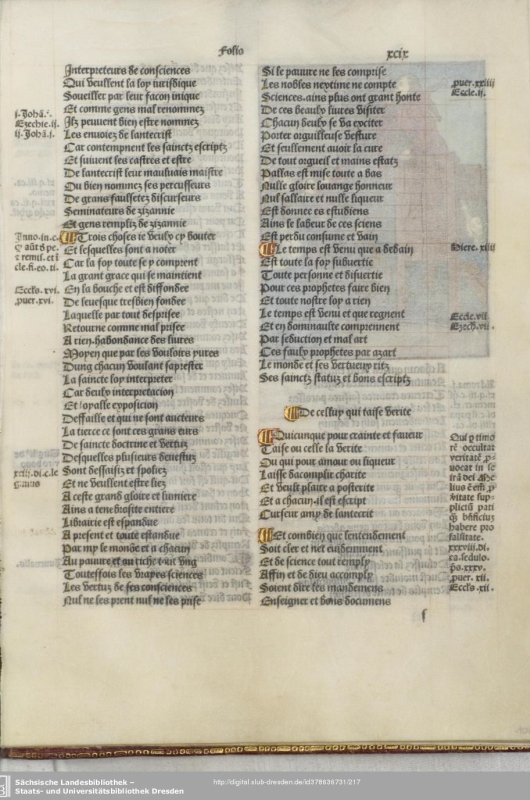 Folio xcix
Interpreteurs de consciences
Qui veullent la loy iurisdique
Soueiller par leur facon inique
Et comme gens mal renommez
Ilz peuuent bien estre nommez
Les enuoiez de lantecrist
Car contempnent les sainctz escriptz
Et suiuent les castres et estre
De lantecrist leur mauluais maistre
Ou bien nommez ses percusseurs
De grans faulsetez discurseurs
Seminateurs de zizannie
Et gens remplis de zizannie
Trois choses ie veulx cy bouter
Et lesquelles sont a noter
Car la foy toute se y comprent
La grant grace qui se maintient
En la bouche et est diffondee
De leuesque tresbien fondee
Laquelle par tout desprisee
Retourne comme mal prisee
A rien habondance des liures
Moyen que par les vouloirs yures
Dung chacun voulant saprester
La saincte foy interpreter
Car veulx interpretacion
Et loyalle exposicion
Deffaille et qui ne sont aucteurs
La tierce ce sont ces grans eurs
De saincte doctrine et vertuz
Desquelles plusieurs deuestuz
Sont dessaisiz et spoliez
Et ne veullent estre liez
A ceste grand gloire et lumiere
Ains a tenebrosite entiere
Librairie est espandue
A present et toute estandue
Par my le monde et a chacun
Au pauure et au riche tout vng
Touteffois les vrayes sciences
Les vertuz de ses consciences
Nul ne les prent nul ne les prise
j. Johã.
Ezechie. ij.
ij. Johã. j.
Eccls. xvi.
puer. xvi.
Si le pauure ne les comprise
Les nobles neytime ne compte
Sciences. ains plus ont grant honte
De ces beaulx liures visiter
Chacun veulx se va exciter
Porter orguilleuse vesture
Et seullement auoir la cure
De tout orgueil et mains estatz
Pallas est mise toute a bas
Nulle gloire louange honneur
Nul sallaire et nulle liqueur
Est donnee es estudiens
Ains le labeur de ces sciens
Est perdu consume et vain
Le temps est venu que a desdain
Est toute la foy subuertie
Toute personne et diuertie
Pour ces prophetes faire bien
Et toute nostre loy a rien
Le temps est venu et que regnent
Et en dommaulte comprennent
Par seduction et mal art
Ces faulx prophetes par azart
Le monde et ses vertueux ritz
Ses sainctz statuz et bons escriptz
De celluy qui taise verite
Quicunque pour crainte et faueur
Taise ou celle la verite
Ou qui pour amour ou liqueur
Laisse dacomplir charite
Et veult plaire a posterite
Et a chacun. il est escript
Curseur amy de lantecrit
Et combien que lentendement
Soit cler et net euidemment
Et de science tout remply
Affin et de dieu accomply
Soient dire les mandemens
Enseigner et bons documens
puer. xxiiij
Eccle. ij.
Hiere. xiiij
Eccle. vij.
Ezech. vij.
puer. xii.
Eccls. xii.
f
Sächsische Landesbibliothek –
Staats- und Universitätsbibliothek Dresden
http://digital.slub-dresden.de/id378636731/217